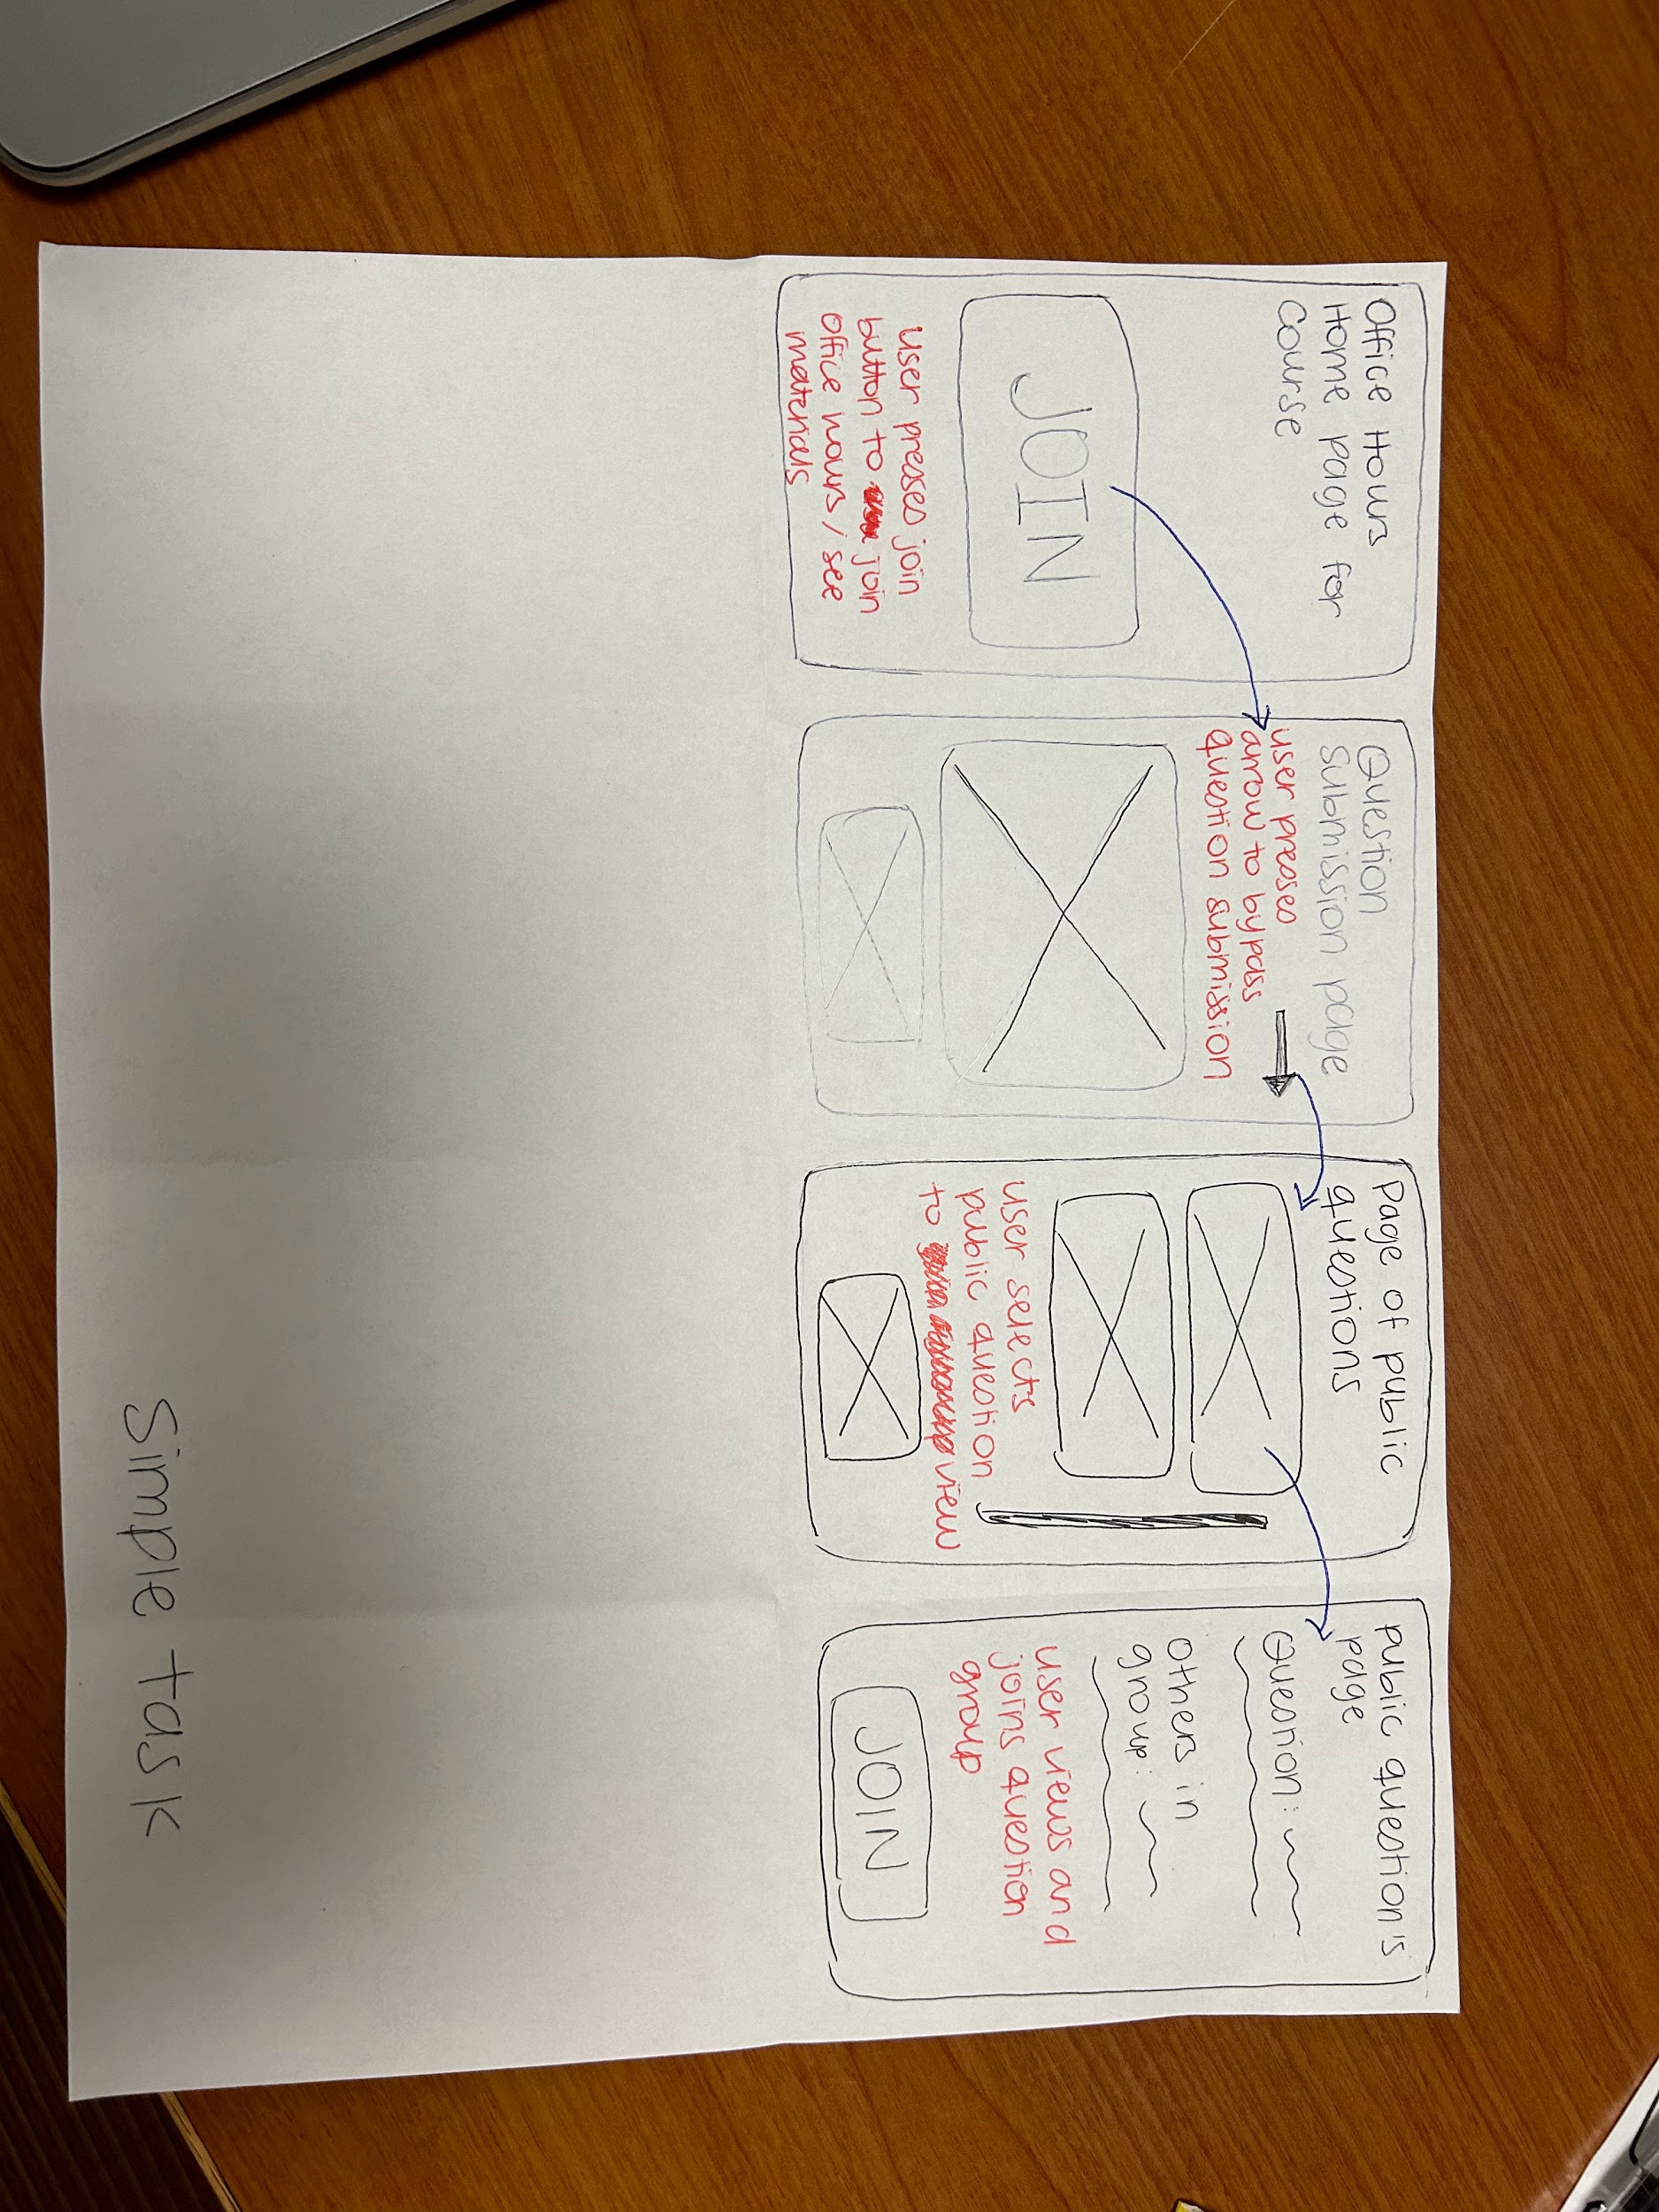 Office Hours
Home page for
Course
JOIN
user presses join
button to join
office hours / see
materials
Question
submission page
user presses
arrow to bypass
question submission
Page of public
questions
user selects
public question
to view
public question's
page
Question:
Others in
group:
user views and
joins question
group
JOIN
Simple task